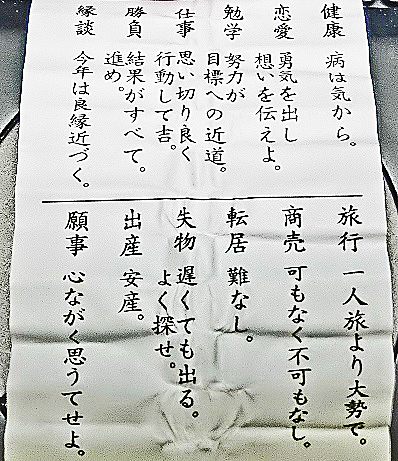 健康 病は気から。
恋愛 勇気を出し
想いを伝えよ。
勉学 努力が
目標への近道。
仕事 思い切り良く
行動して吉。
勝負 結果がすべて。
進め。
縁談 今年は良縁近づく。
旅行 一人旅より大勢で。
商売 可もなく不可もなし。
転居 難なし。
失物 遅くても出る。
よく探せ。
出産 安産。
願事 心ながく思うてせよ。